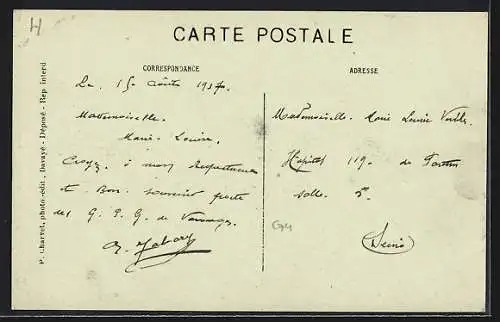 H
CARTE POSTALE
CORRESPONDANCE
ADRESSE
P. Charvet, photo-édit., Davayé - Déposé - Rep. interd
Le 15 Août 1937.
Mademoiselle.
Marie-Louise,
Croyez à mon
et Bon souvenir
des G. P. G. de
Mademoiselle Marie Louise
Hôpital 119. de
salle 5.
(Seine)